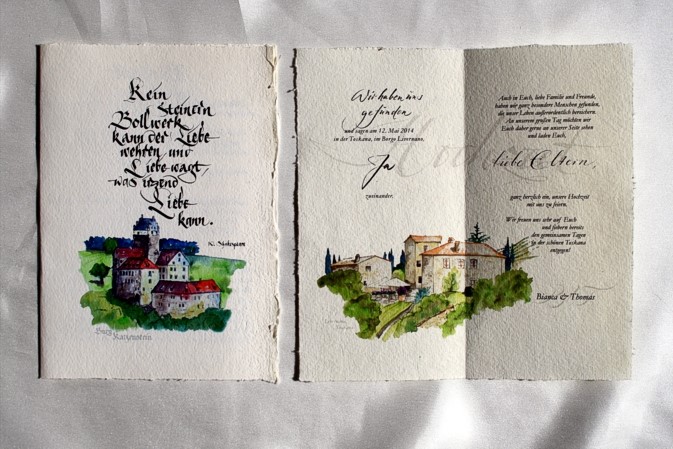 Kein
steinern
Bollwerk
kann der Liebe
wehren und
Liebe wagt,
was irgend
Liebe
kann.
Burg
Katzenstein
Wir haben uns
gefunden
und sagen am 12. Mai 2014
in der Toskana, im Borgo Livernano,
Ja
zueinander.
Auch in Euch, liebe Familie und Freunde,
haben wir ganz besondere Menschen gefunden,
die unser Leben außerordentlich bereichern.
An unserem großen Tag möchten wir
Euch daher gerne an unserer Seite sehen
und laden Euch,
liebe Eltern,
ganz herzlich ein, unsere Hochzeit
mit uns zu feiern.
Wir freuen uns sehr auf Euch
und fiebern bereits
den gemeinsamen Tagen
in der schönen Toskana
entgegen!
Bianca & Thomas